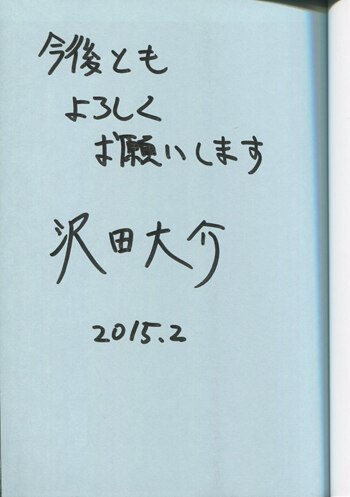 今後とも
よろしく
お願いします
沢田大介
2015.2